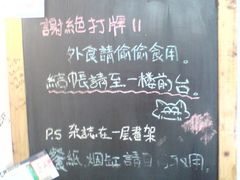 謝絕打牌!!
外食請偷偷食用。
結帳請至一楼前台。
P.S 杂誌在一层書架
餐紙、烟缸請自行取用。